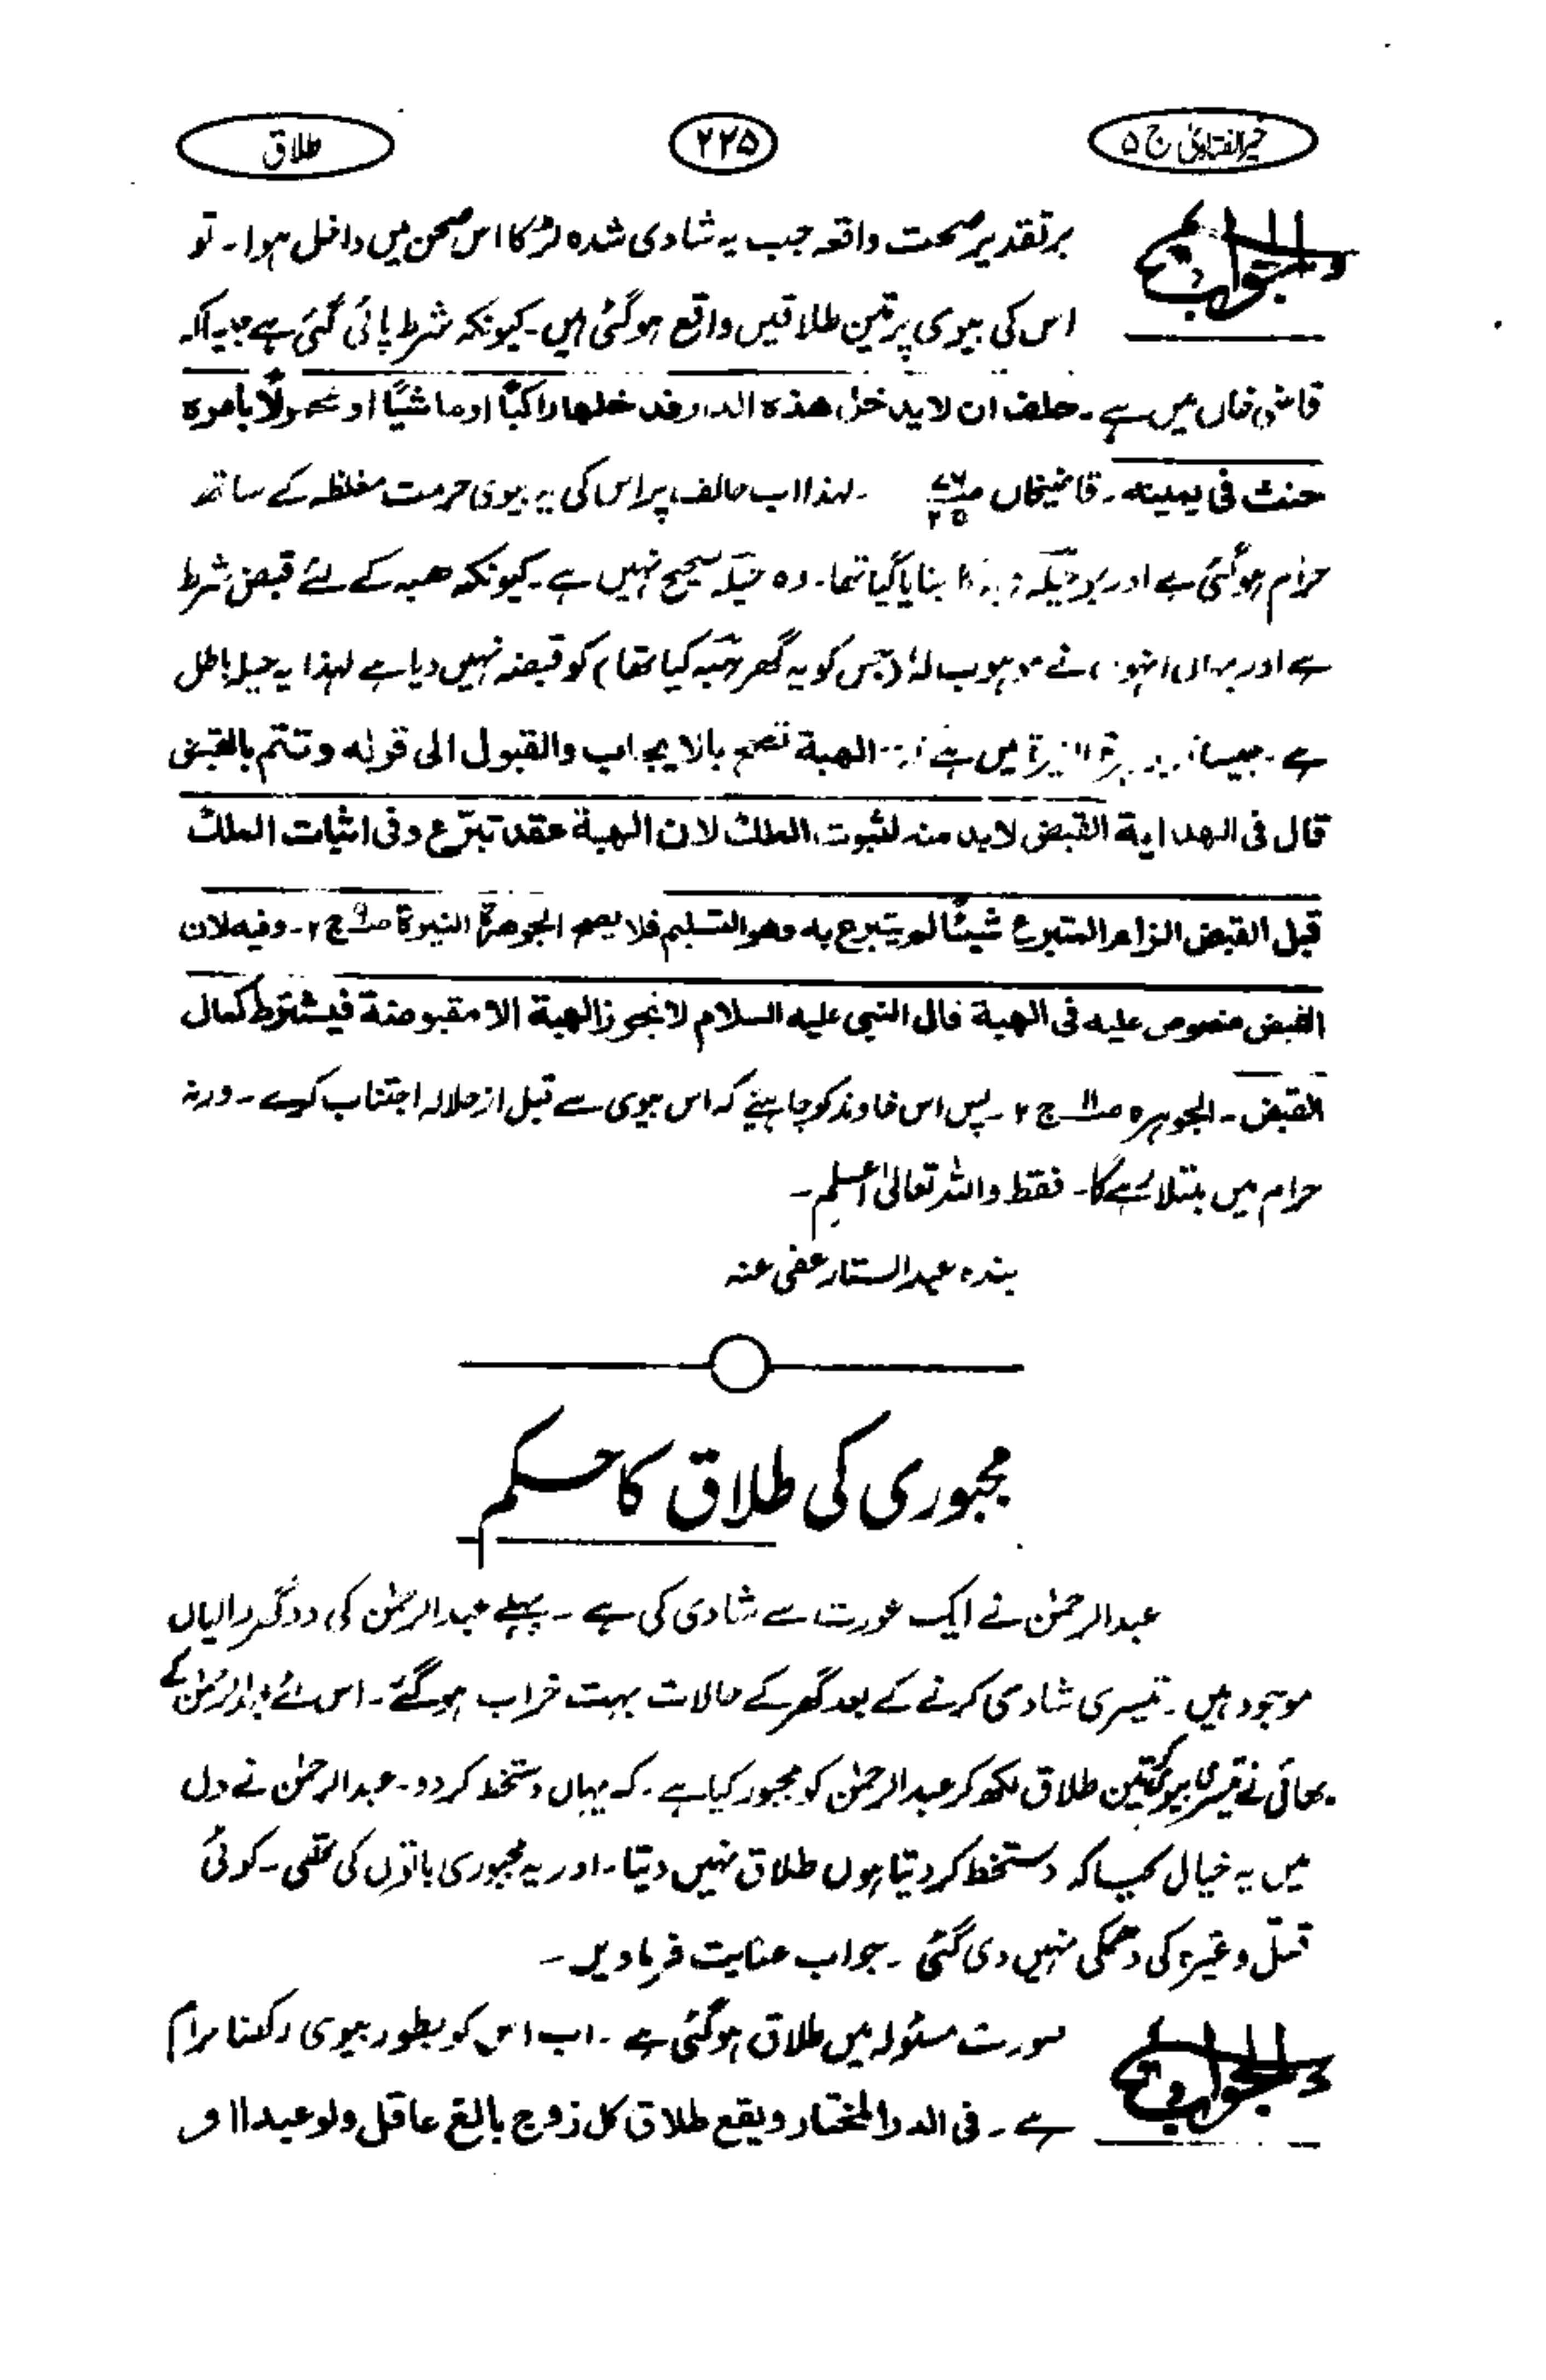 خیر الفتاویٰ ج ۵
۲۲۵
طلاق
الجواب
برتقدیر صحت واقعہ جب یہ شادی شدہ لڑکا اس صحن میں داخل ہوا۔ تو
اس کی بیوی پر تین طلاقیں واقع ہوگئی ہیں۔ کیونکہ شرط پائی گئی ہے جیساکہ
قاضی خاں میں ہے۔ حلف ان لا یدخل ھذہ الدار فدخلھا راکبًا او ماشیًا او محمولًا بامرہ
حنث فی یمینہ۔ قاضیخاں ۔ لہذا اب حالف پر اس کی یہ بیوی حرمت مغلظہ کے ساتھ
حرام ہوگئی ہے اور یہ حیلہ بنایا گیا تھا۔ وہ حیلہ صحیح نہیں ہے۔ کیونکہ ھبہ کے لئے قبض شرط
ہے اور یہاں انہوں نے موہوب لہٗ (جس کو یہ گھر ھبہ کیا تھا) کو قبضہ نہیں دیا ہے لہذا یہ حیلہ باطل
ہے۔ میں ہے الھبة تصح بالایجاب والقبول الی قولہ وتتم بالقبض
قال فی الھدایة القبض لابد منہ لثبوت الملک لان الھبة عقد تبرّع وفی اثبات الملک
قبل القبض الزام المتبرع شیئًا لم یتبرع بہ وھو التسلیم فلا یصح الجوھرة النیرة صـ۹ ج ۲۔ وفیہ لان
القبض منصوص علیہ فی الھبة قال النبی علیہ السلام لا تجوز الھبة الا مقبوضة فیشترط کمال
القبض۔ الجوہرہ صـ۱۱ ج ۲۔ پس اس خاوند کو چاہیئے کہ اس بیوی سے قبل از حلالہ اجتناب کرے۔ ورنہ
حرام میں مبتلا رہے گا۔ فقط واللہ تعالیٰ اعلم۔
بندہ عبدالستار عفی عنہ
مجبوری کی طلاق کا حکم
عبدالرحمٰن نے ایک عورت سے شادی کی ہے۔ پہلے عبدالرحمٰن کی دو گھر والیاں
موجود ہیں۔ تیسری شادی کرنے کے بعد گھر کے حالات بہت خراب ہوگئے۔ اس لئے عبدالرحمٰن کے
بھائی نے تیسری بیوی کو تین طلاق لکھ کر عبدالرحمٰن کو مجبور کیا ہے۔ کہ یہاں دستخط کر دو۔ عبدالرحمٰن نے دل
میں یہ خیال کیا کہ دستخط کر دیتا ہوں طلاق نہیں دیتا۔ اور یہ مجبوری باتوں کی تھی۔ کوئی
قتل وغیرہ کی دھمکی نہیں دی گئی۔ جواب عنایت فرما دیں۔
الجواب
صورت مسئولہ میں طلاق ہوگئی ہے۔ اب اس کو بطور بیوی رکھنا حرام
ہے۔ فی الدر المختار ویقع طلاق کل زوج بالغ عاقل ولو عبدا او